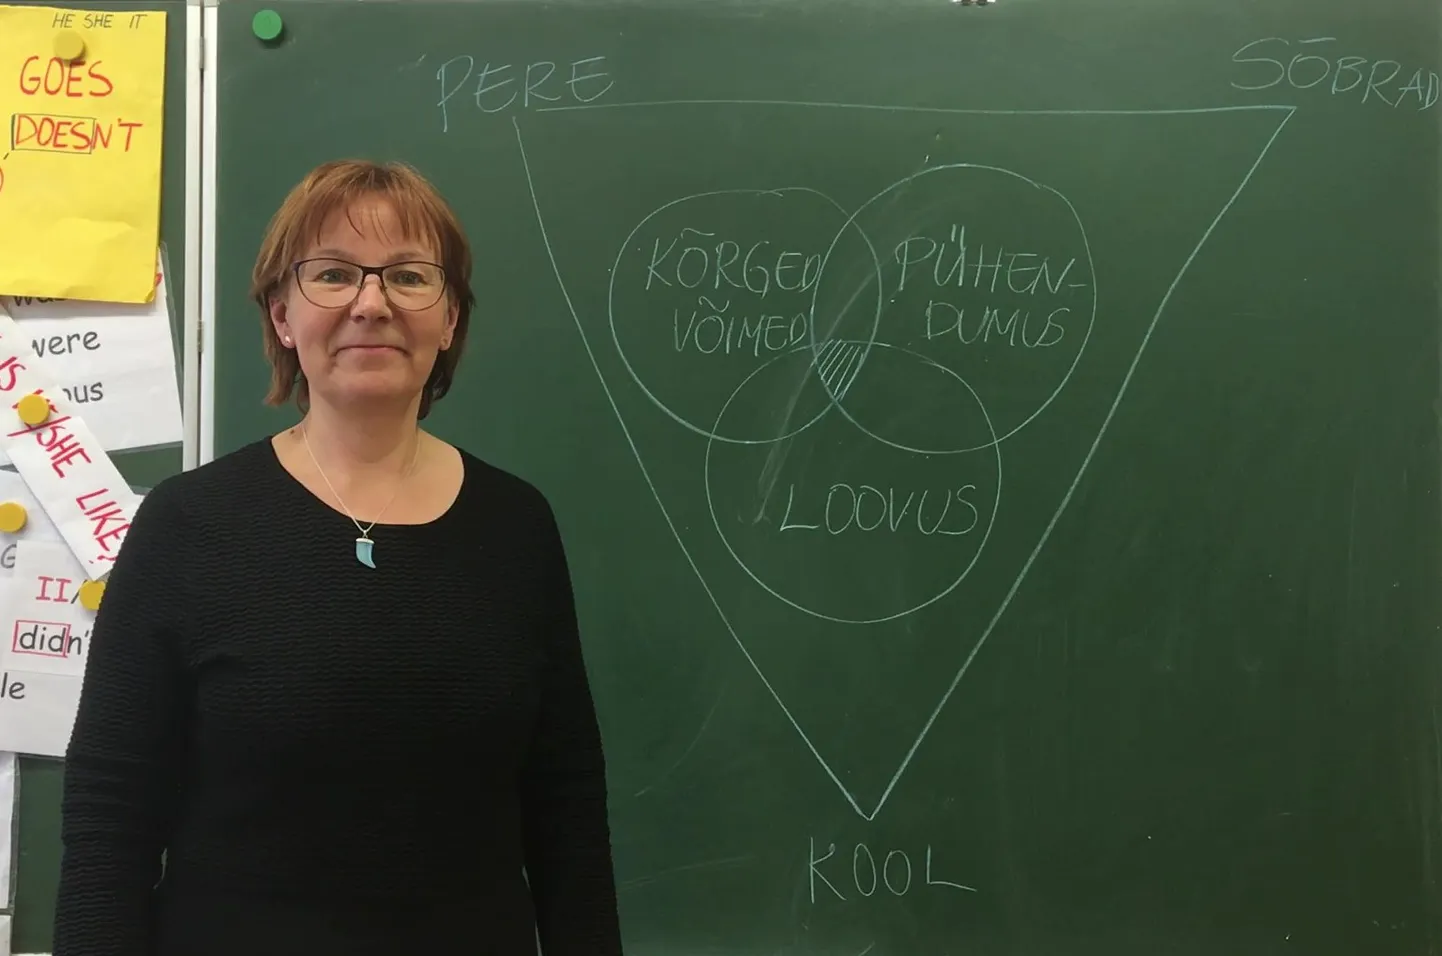 HE SHE IT
GOES
DOESN'T
were
SHE LIKE?
II/
didn'
le
PERE
SÕBRAD
KÕRGED
VÕIMED
PÜHEN-
DUMUS
LOOVUS
KOOL